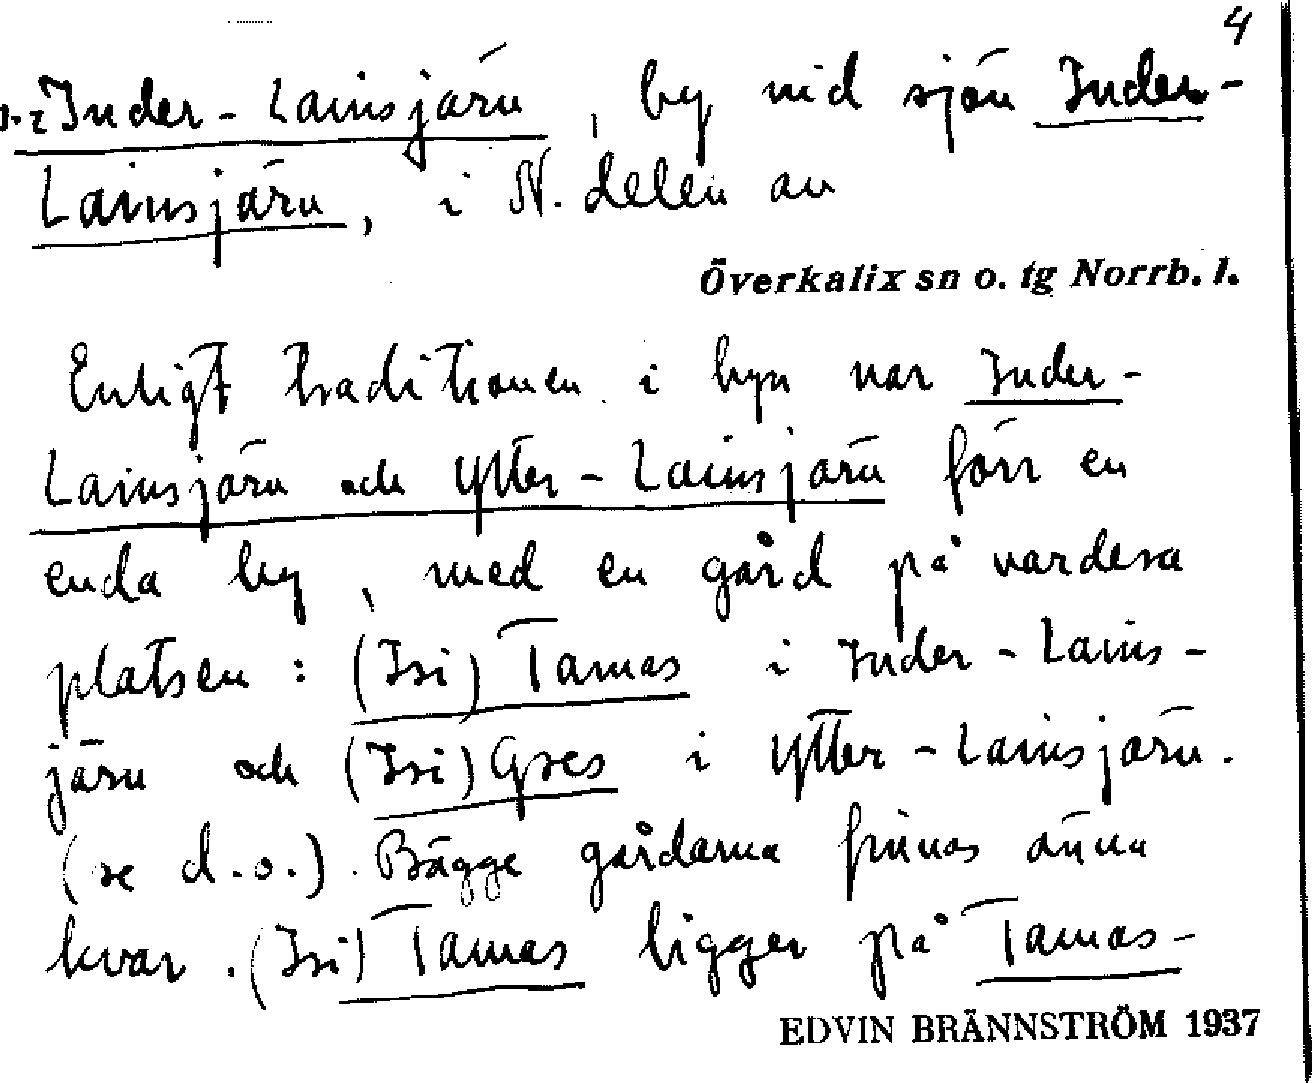 4
Inder-Lainsjärn, by vid sjön Inder-
Lainsjärn, i N. delen av
Överkalix sn o. tg Norrb. l.
Enligt traditionen i byn var Inder-
Lainsjärn och Ytter-Lainsjärn förr en
enda by, med en gård på vardera
platsen: (Isi) Tamas i Inder-Lains-
järn och (Isi) Gres i Ytter-Lainsjärn.
(se d.o.). Bägge gårdarna finnas ännu
kvar. (Isi) Tamas ligger på Tamas-
EDVIN BRÄNNSTRÖM 1937